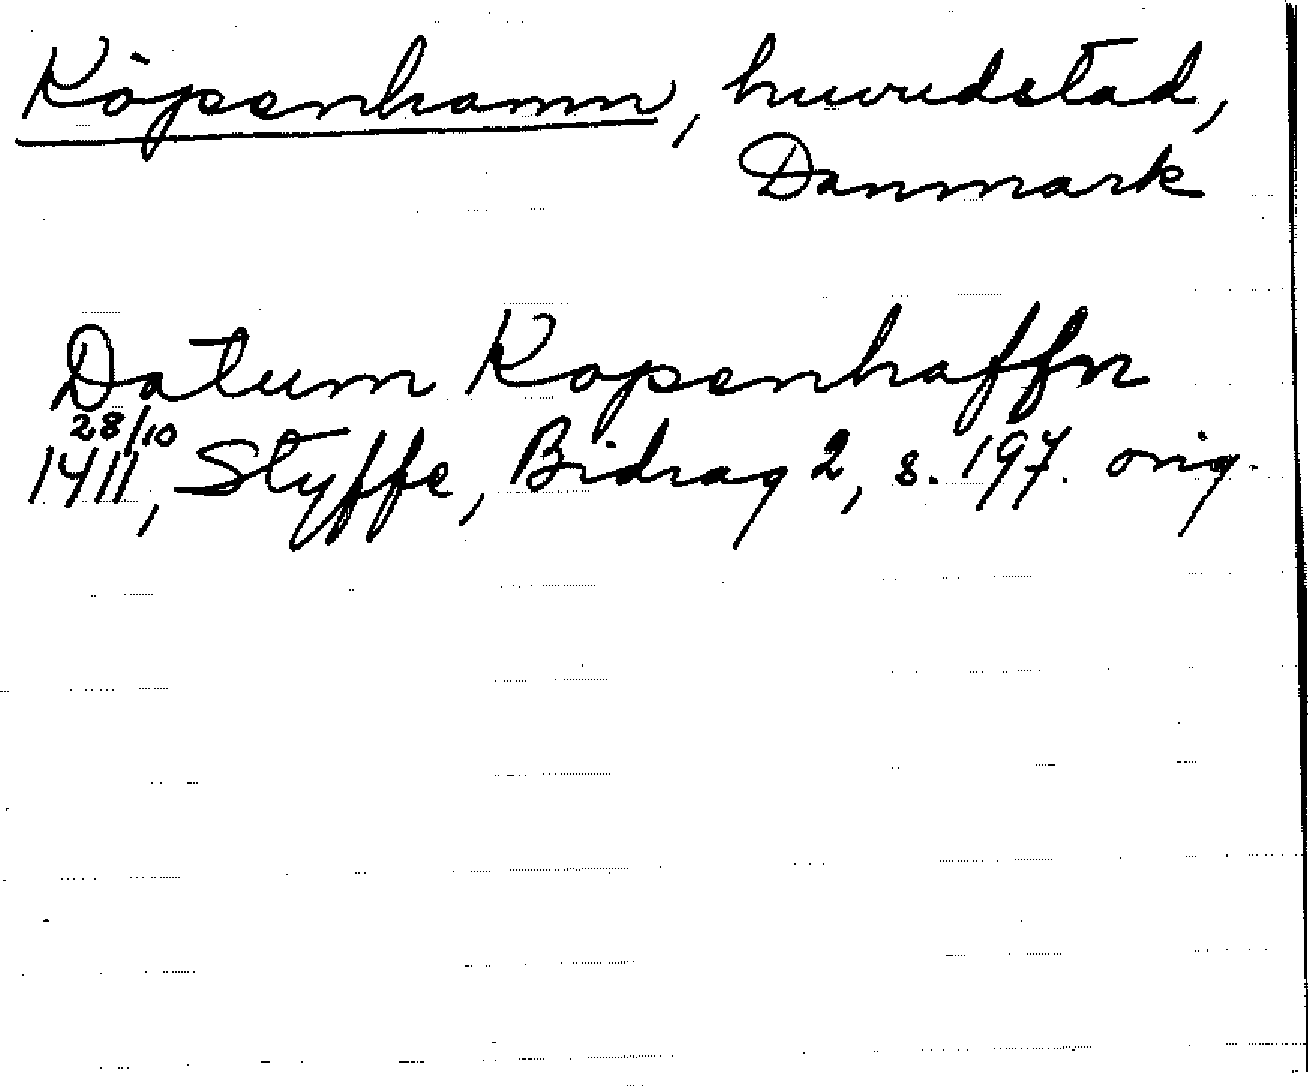 Köpenhamn, huvudstad,
Danmark
Datum Kopenhaffn
28/10
1411, Styffe, Bidrag 2, s. 197. orig.